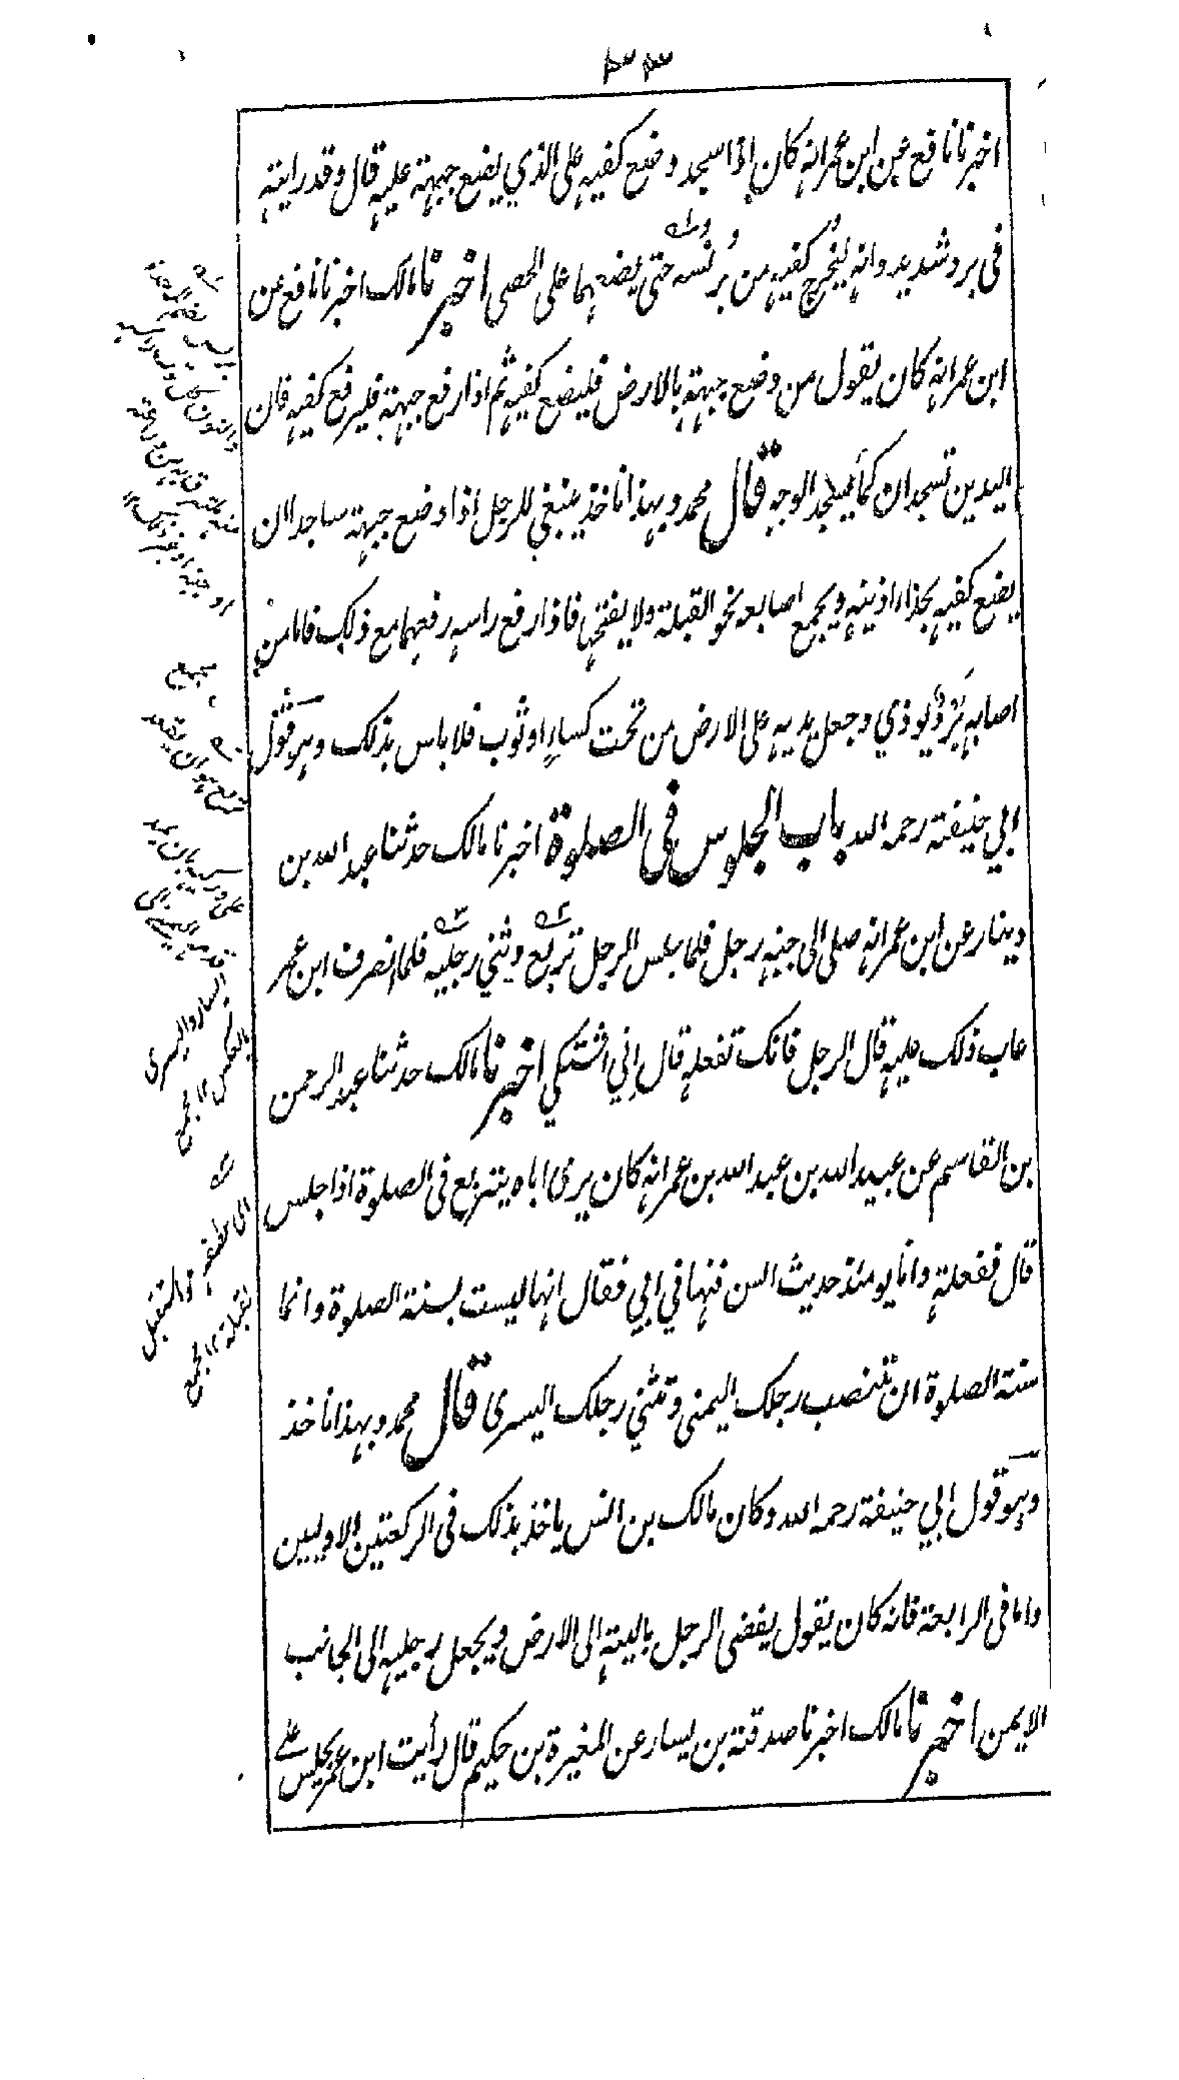 ٣٣
اخبرنا نافع عن ابن عمر انه كان اذا سجد وضع كفيه على الذي يضع جبهته عليه قال وقد رايته
في برد شديد وانه ليُخرج كفيه من بُرنسه حتى يضعهما على الحصى اخبرنا مالك اخبرنا نافع عن
ابن عمر انه كان يقول من وضع جبهته بالارض فليضع كفيه ثم اذا رفع جبهته فليرفع كفيه فان
اليدين تسجدان كما يسجد الوجه قال محمد وبهذا ناخذ ينبغي للرجل اذا وضع جبهته ساجدا ان
يضع كفيه بحذاء اذنيه ويجمع اصابعه نحو القبلة ولا يفتحها فاذا رفع راسه رفعهما مع ذلك فاما من
اصابه بَرْدٌ يوذي وجعل يديه على الارض من تحت كساءٍ او ثوب فلا باس بذلك وهو قول
ابي حنيفة رحمه الله باب الجلوس في الصلوة اخبرنا مالك حدثنا عبد الله بن
دينار عن ابن عمر انه صلى الى جنبه رجل فلما جلس الرجل تربع وثني رجليه فلما انصرف ابن عمر
عاب ذلك عليه قال الرجل فانك تفعله قال اِني اشتكي اخبرنا مالك حدثنا عبد الرحمن
بن القاسم عن عبيد الله بن عبد الله بن عمر انه كان يرى اباه يتربع في الصلوة اذا جلس
قال ففعلته وانا يومئذ حديث السن فنهاني ابي فقال انها ليست بسنة الصلوة وانما
سنة الصلوة ان تنصب رجلك اليمنى وتثني رجلك اليسرى قال محمد وبهذا ناخذ
وهو قول ابي حنيفة رحمه الله وكان مالك بن انس ياخذ بذلك في الركعتين الاوليين
واما في الرابعة فانه كان يقول يفضى الرجل باليته الى الارض ويجعل رجليه الى الجانب
الايمن اخبرنا مالك اخبرنا صدقة بن يسار عن المغيرة بن حكيم قال رأيت ابن عمر يجلس على